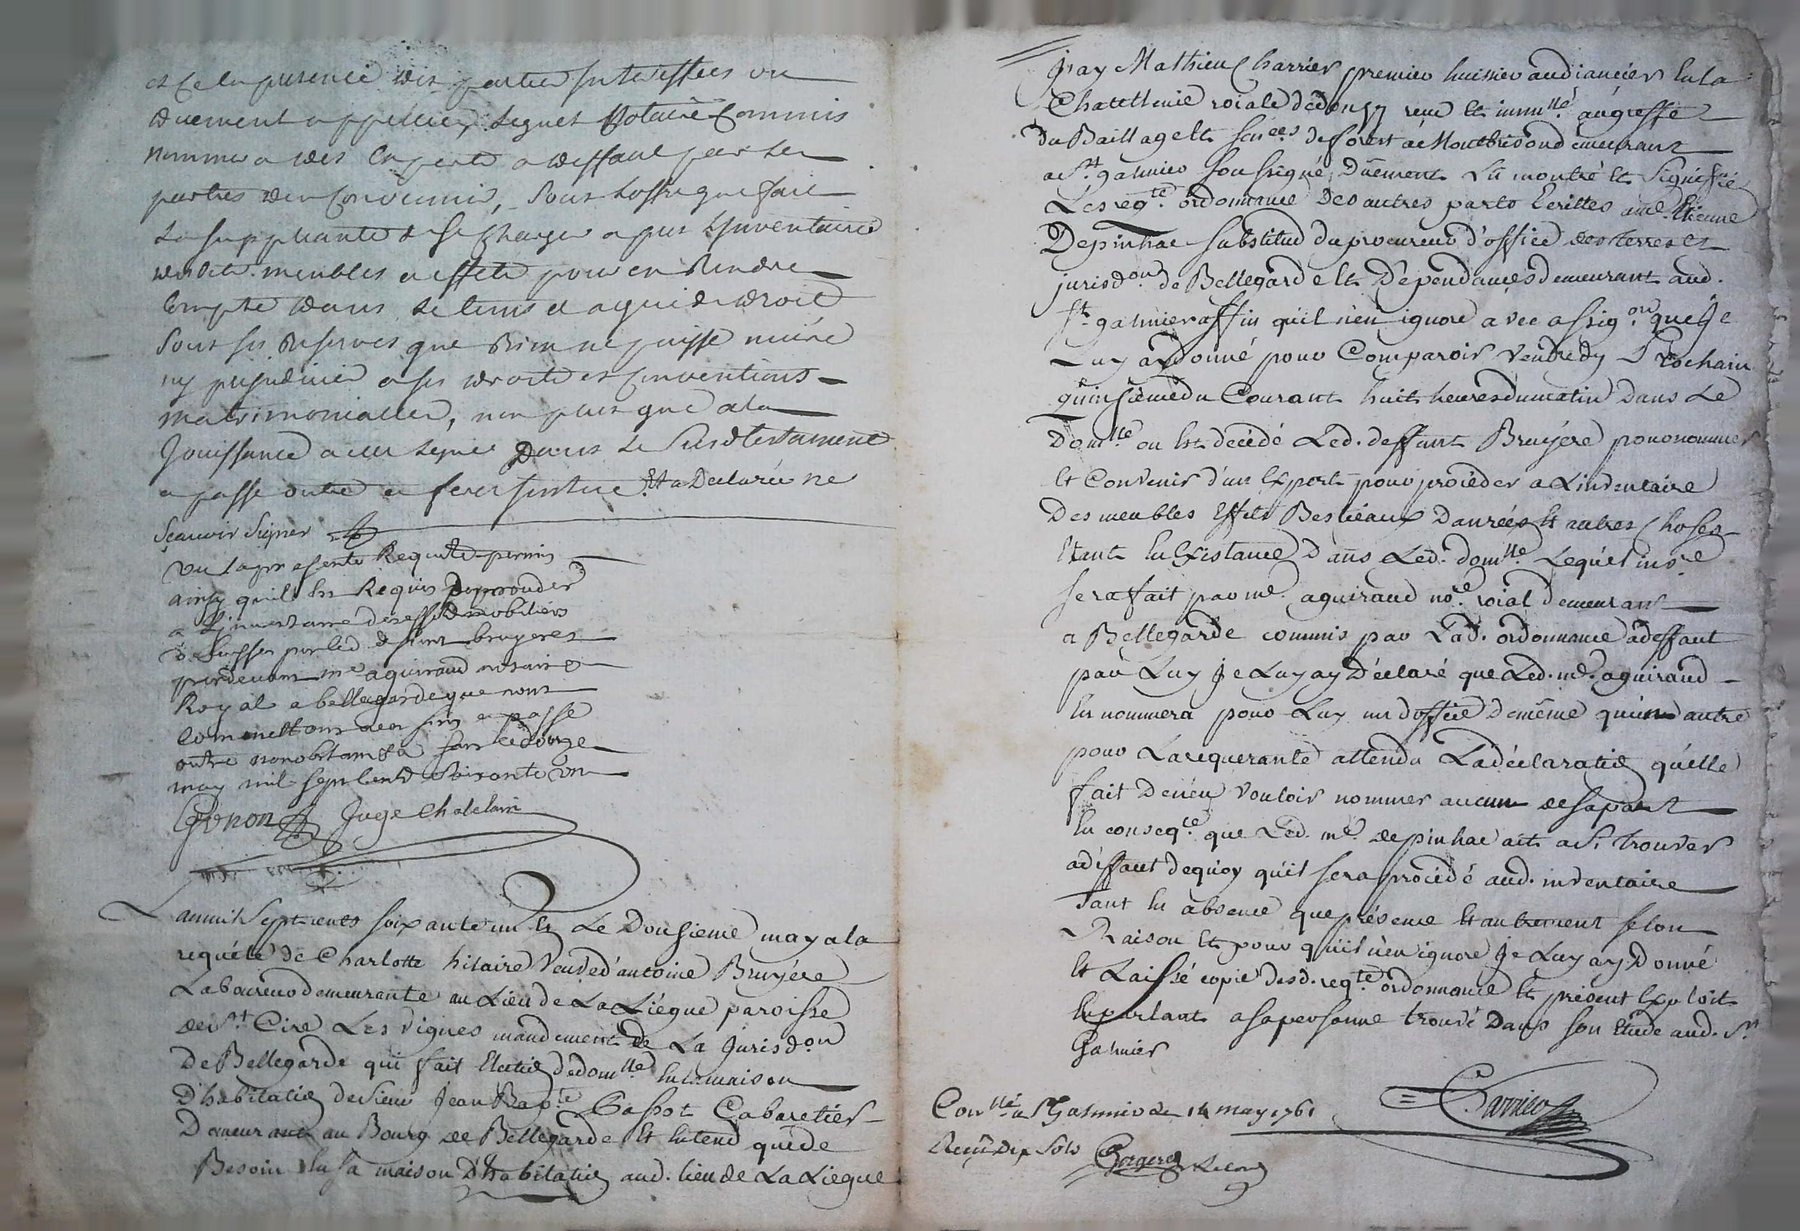 et ce en presence des parties interessées ou
duement appellées, le quel Notaire Commis
nommera des experts a deffaut par les
parties d'en Convenir, sous l'offre que fait
la suppliante de se charger apres l'Inventaire
desdits meubles et effets pour en Rendre
Compte dans le tems et a qui de droit
sous ses Reserves que Rien ne puisse nuire
ny prejudicier a ses droits et Conventions
matrimonialles, non plus que a la
Jouissance a elle leguée Dans le Susd testament
et passé outre et ferez justice. Et a Declarée ne
Sçauoir Signer
Vu la presente Requete permis
ainsy quil est Requis proceder
a L'inuentaire des effets mobiliers
delaisses par led defunt bruyeres
pardeuant me aguiraud notaire
Royal a bellegarde que nous
Commettons a ces fins et passé
outre nonobstant &a fait ce douze
may mil sept cents Soixante un
Gonon Juge Chatelain
L'an mil Sept cents soixante un & Le Dousieme may a la
requéte de Charlotte hilaire Veuve d'antoine Bruyére
Laboureur demeurante au Lieu de La Liégue paroisse
de St Cire Les Vignes mandement de La Jurisdon
De Bellegarde qui fait Electio de domlle en la maison
D'habitatio de Sieur Jean Bapte Cabaretier
Demeurant au Bourg de Bellegarde Et entend que de
Besoin en sa maison D'habitatio aud. lieu de La Liegue
J'ay Mathieu Charrier premier huissier audiancier en la
Chatellenie roiale de donzy recu Et immlé au greffe
du Baillage Et Senéés de forest a Montbrison demeurant
a St galmier Soussigné, Düement Lû montré Et Signifié
Les reqte ordonnance Des autres parts Ecrittes a me Etienne
Depinhac Substitud du procureur d'office des terres et
jurisdon de Bellegarde Et Dépendances demeurant aud.
St galmier affin qu'il n'en ignore avec assigon que Je
Luy ai Donné pour Comparoir Vendredy Prochain
quinsiéme du Courant huit heures du matin Dans Le
Domlle ou Est decédé Led. deffunt Bruyére pour nommer
Et Convenir d'un Expert pour procéder a L'inventaire
Des meubles Effets Bestiéaux Danrées Et autres Choses
Etant En Existance Dans Led. domlle Lequel invre
sera fait par me aguiraud nore roial demeurant
a Bellegarde commis par Lad. ordonnance a deffaut
par Luy Je Luy ay Déclaré que Led. me aguiraud
En nommera pour Luy un d'office de même qu'un autre
pour La requerante attendu La déclaratio qu'elle
fait De n'en Vouloir nommer aucun de sa part
En conseqce que Led. me depinhac ait a s'i trouver
a deffaut dequoy qu'il sera procédé aud. inventaire
Tant En absence que présence Et autrement selon
Raison Et pour qu'il n'en ignore Je Luy ay Donné
Et Laissé copie desd. reqte ordonnance Et présent Exploit
En parlant a sa personne trouvé Dans son Etude aud. St
Galmier
Charrier
Conllé a St Galmier le 14 may 1761
Recu Dix Sols